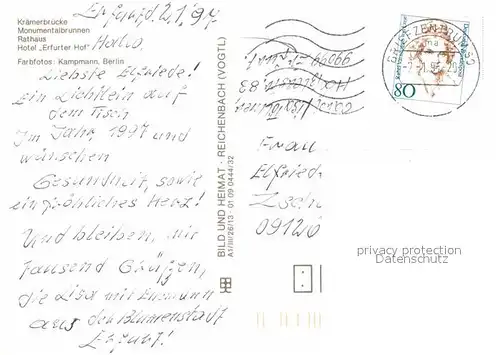 Krämerbrücke
Monumentalbrunnen
Rathaus
Hotel „Erfurter Hof"
Farbfotos: Kampmann, Berlin
Erfurt d. 2.1.97
Hallo
Liebste Elfriede!
Ein Lichtlein auf
dem Tisch
Im Jahr 1997 und
wünschen
Gesundheit, sowie
ein fröhliches Herz!
Und bleiben, mit
tausend Grüßen,
die Lisa mit
aus der Blumenstadt
Erfurt!
BILD UND HEIMAT · REICHENBACH (VOGTL)
A1/III/26/13 · 01 09 0444/32
99099 Erfurt
83
Frau
Elfried
Zsch
09126
BRIEFZENTRUM
80
privacy protection
Datenschutz